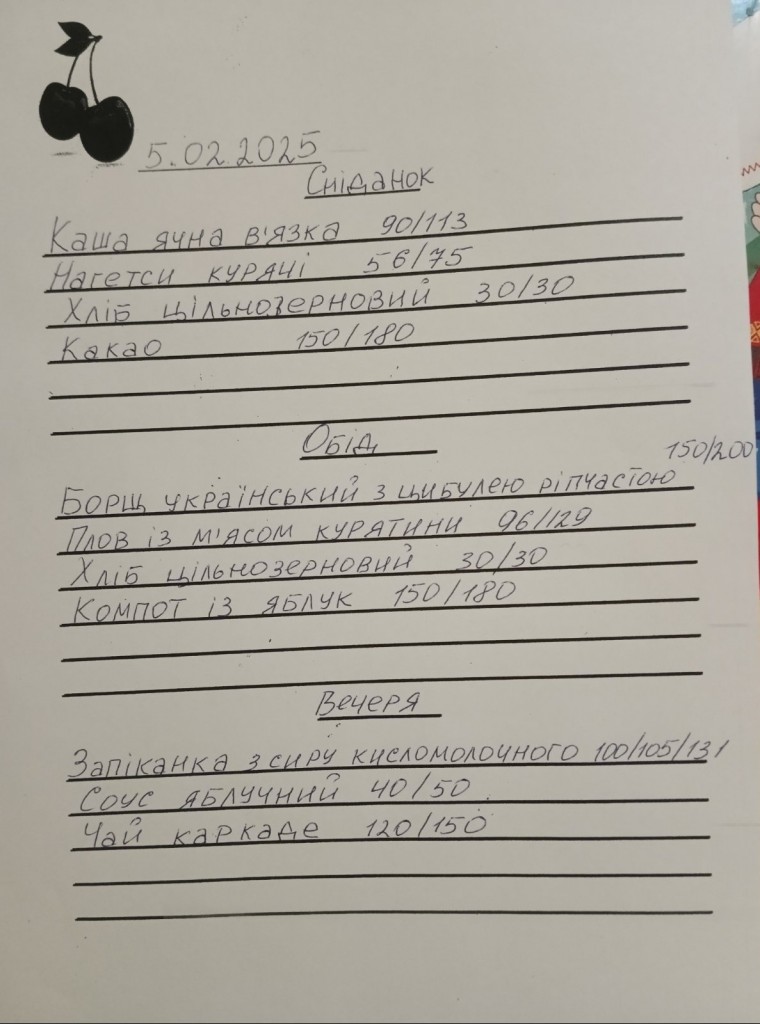 5.02.2025
Сніданок
Каша ячна в'язка 90/113
Нагетси курячі 56/75
Хліб цільнозерновий 30/30
Какао 150/180
Обід
150/200
Борщ український з цибулею ріпчастою
Плов із м'ясом курятини 96/129
Хліб цільнозерновий 30/30
Компот із яблук 150/180
Вечеря
Запіканка з сиру кисломолочного 100/105/131
Соус яблучний 40/50
Чай каркаде 120/150